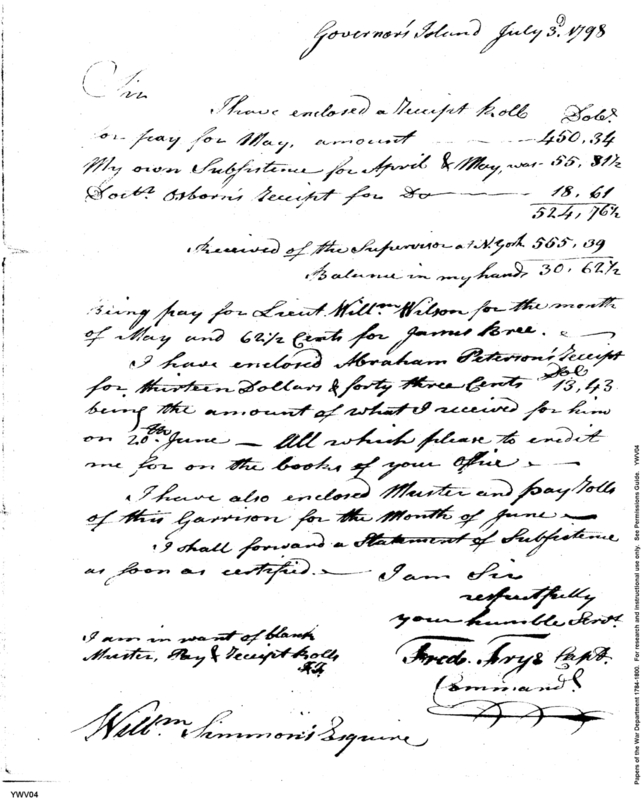 Governor's Island July 3d. 1798
Sir
I have enclosed a receipt Roll Dolrs.
for pay for May, amount 450.34
My own Subsistence for April & May, was 55.81 1/2
Doctr. Osborn's Receipt for Do 18.61
524,76 1/2
Received of the Supervisor at N. York 555.39
Balance in my hands 30.62 1/2
Being pay for Lieut. Willm. Wilson for the month
of May and 62 1/2 Cents for James Bree.
I have enclosed Abraham Peterson's Receipt
for thirteen Dollars & forty three Cents Dol 13,43
being the amount of what I received for him
on 20th June — All which please to credit
me for on the books of your office —
I have also enclosed Muster and pay rolls
of this Garrison for the Month of June —
I shall forward a Statement of Subsistence
as soon as certified. — I am Sir
respectfully
your humble Servt.
Fred. Frye Capt.
Command.
I am in want of blank
Muster, Pay & Receipt Rolls
F.F.
Willm Simmons Esquire
Papers of the War Department 1784-1800. For research and instructional use only. See Permissions Guide. YWV04
YWV04